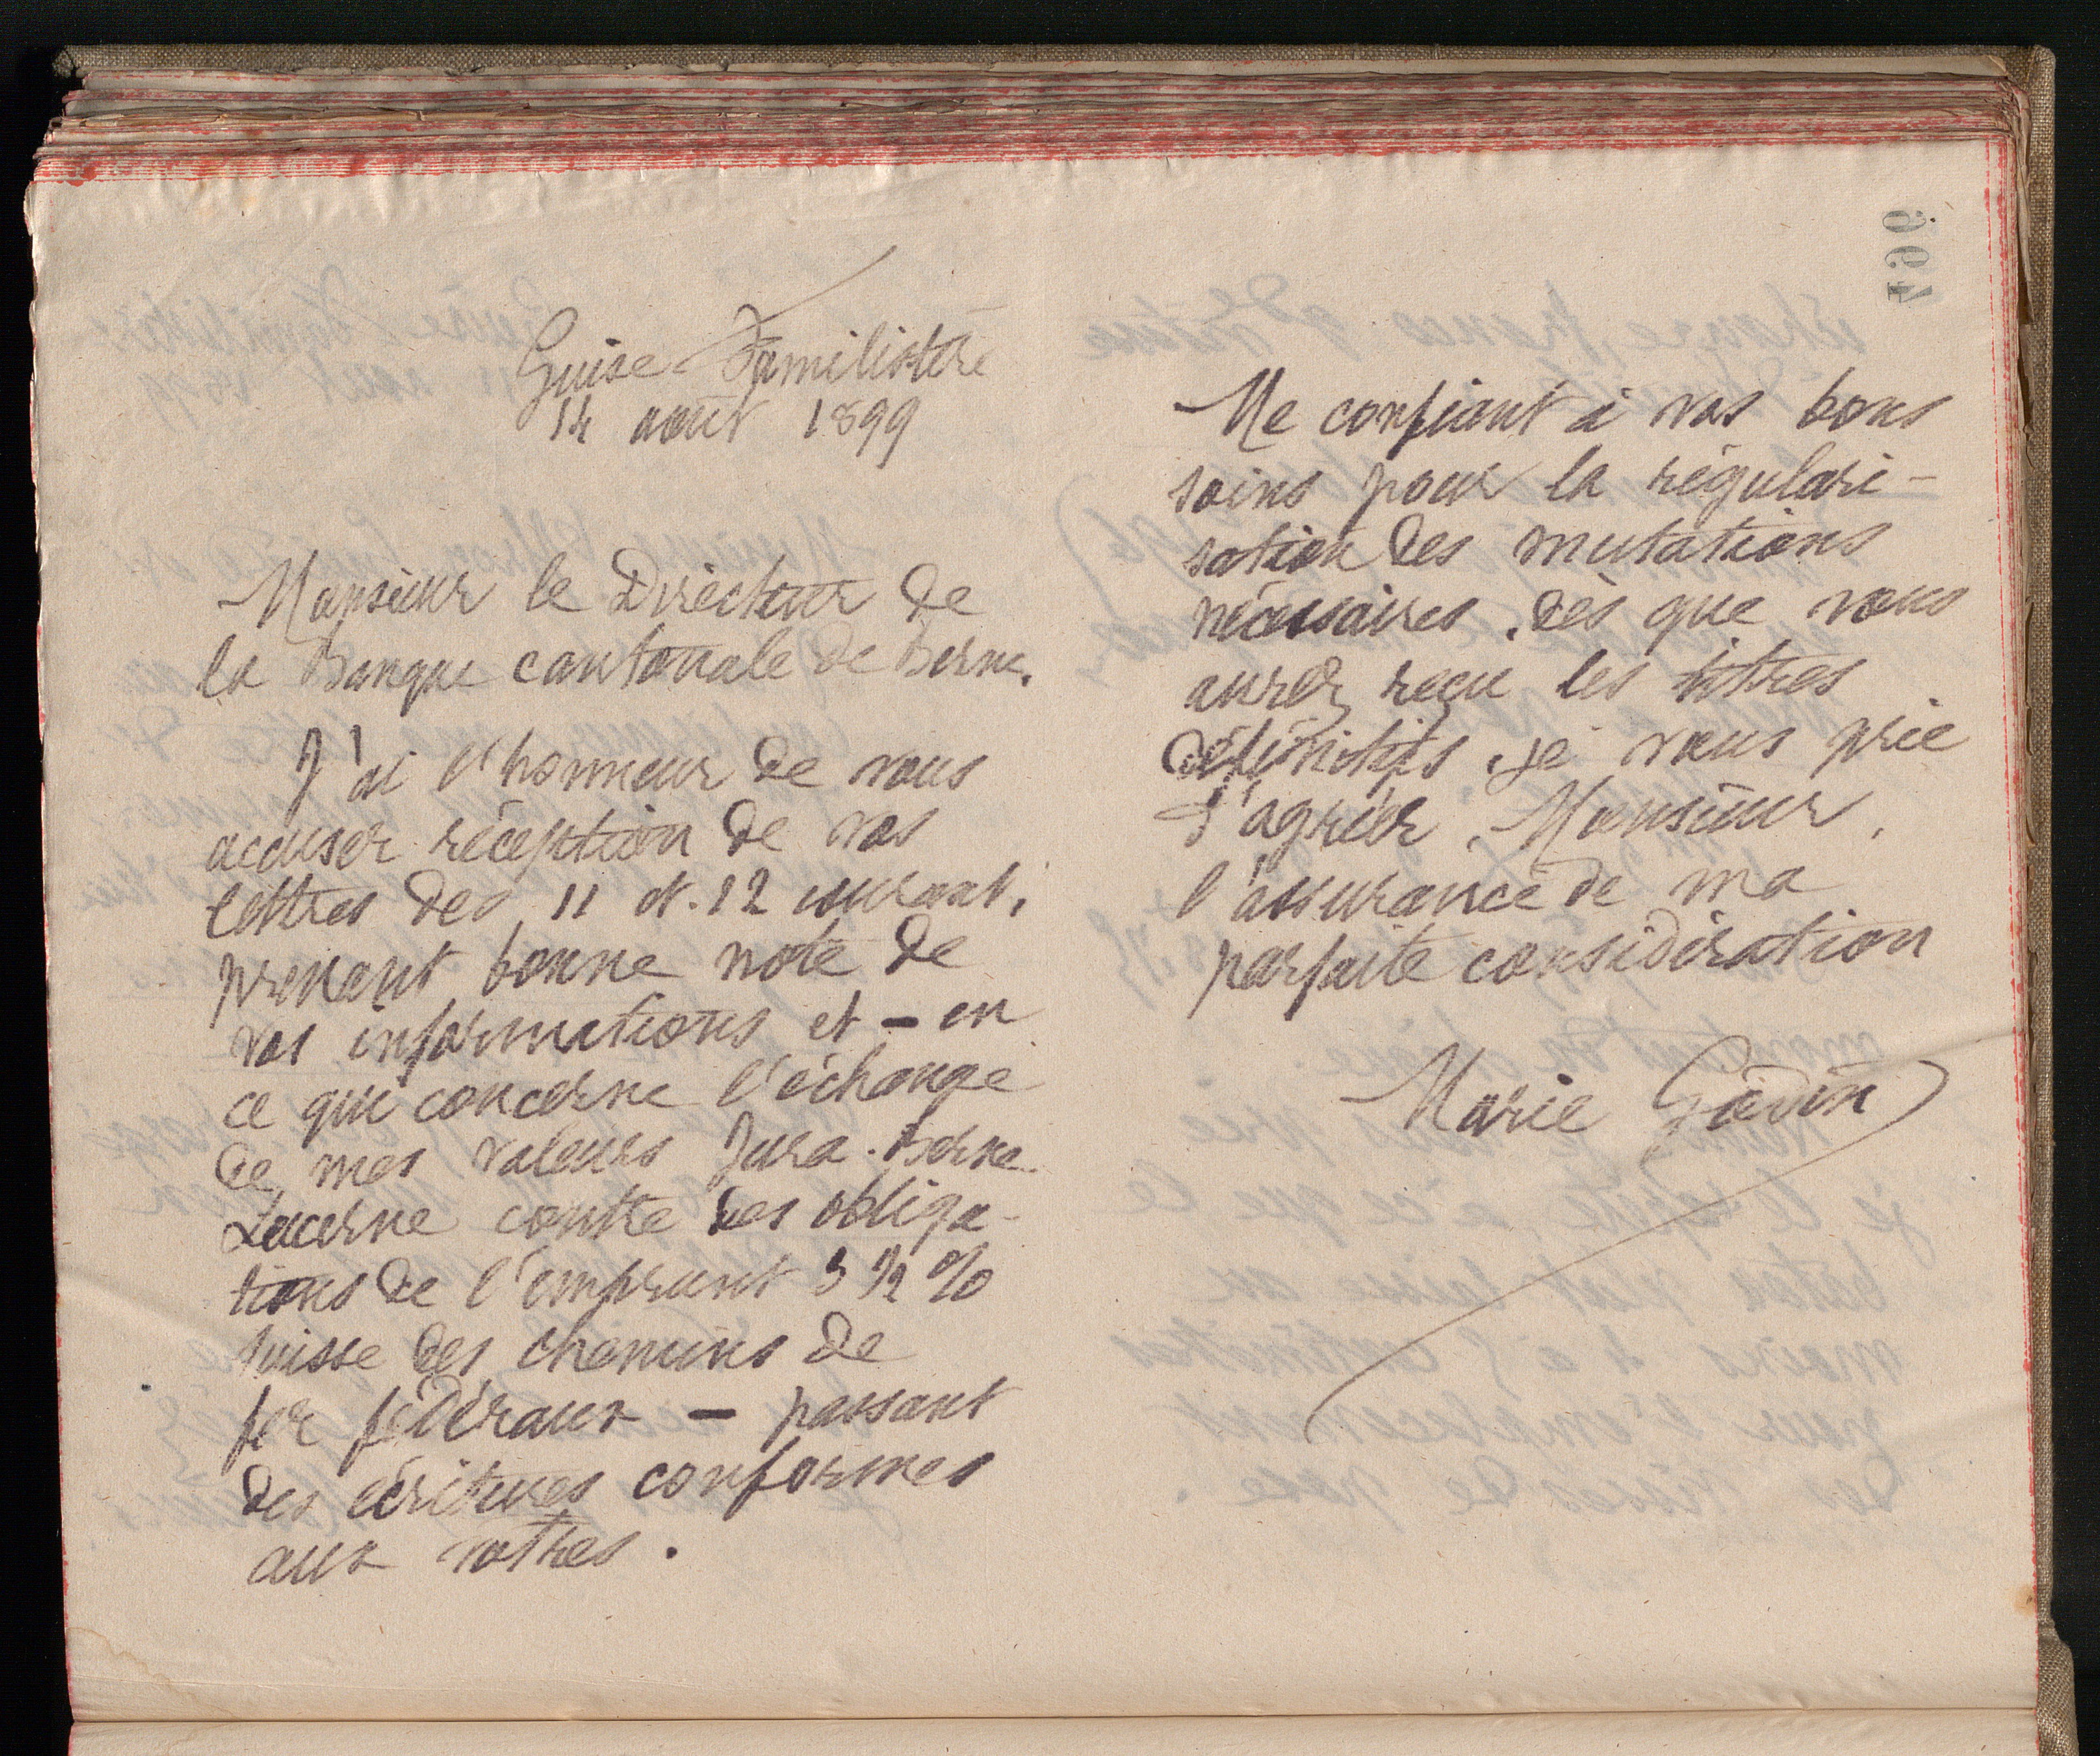 Guise-Familistère
14 août 1899
Monsieur le Directeur de
la Banque cantonale de Berne.
J'ai l'honneur de vous
accuser réception de vos
lettres des 11 et 12 courant,
prenant bonne note de
vos informations et - en
ce qui concerne l'échange
de mes valeurs Jura-Berne
Lucerne contre des obliga-
tions de l'emprunt 3 1/2 %
suisse des chemins de
fer fédéraux - passant
des écritures conformes
aux vôtres.
496
Me confiant à vos bons
soins pour la régulari-
sation des mutations
nécessaires, dès que vous
aurez reçu les titres
définitifs, je vous prie
d'agréer, Monsieur,
l'assurance de ma
parfaite considération
Marie Godin